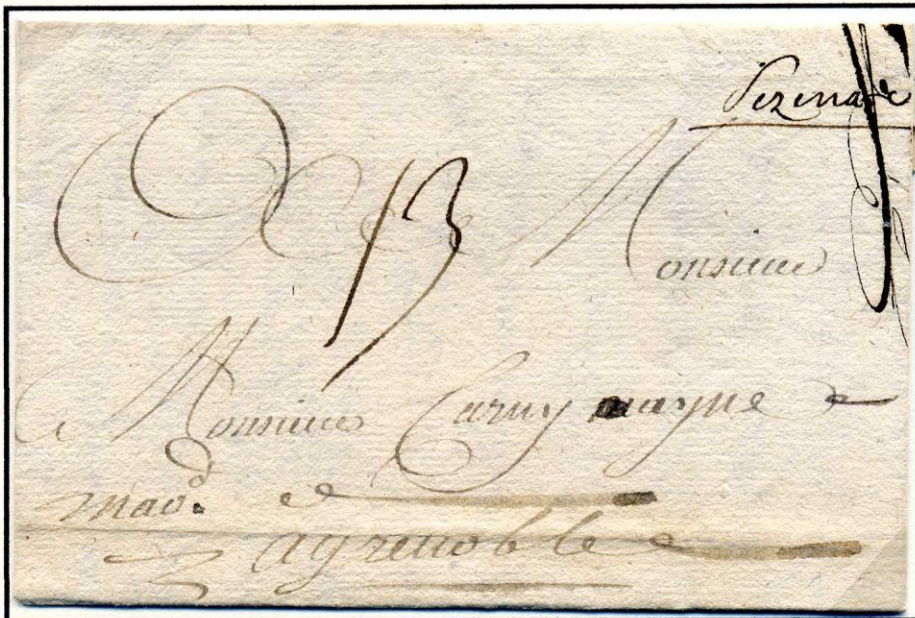 Pezenas
13
Monsieur
A Monsieur Carny mayne
mard.
a grenoble